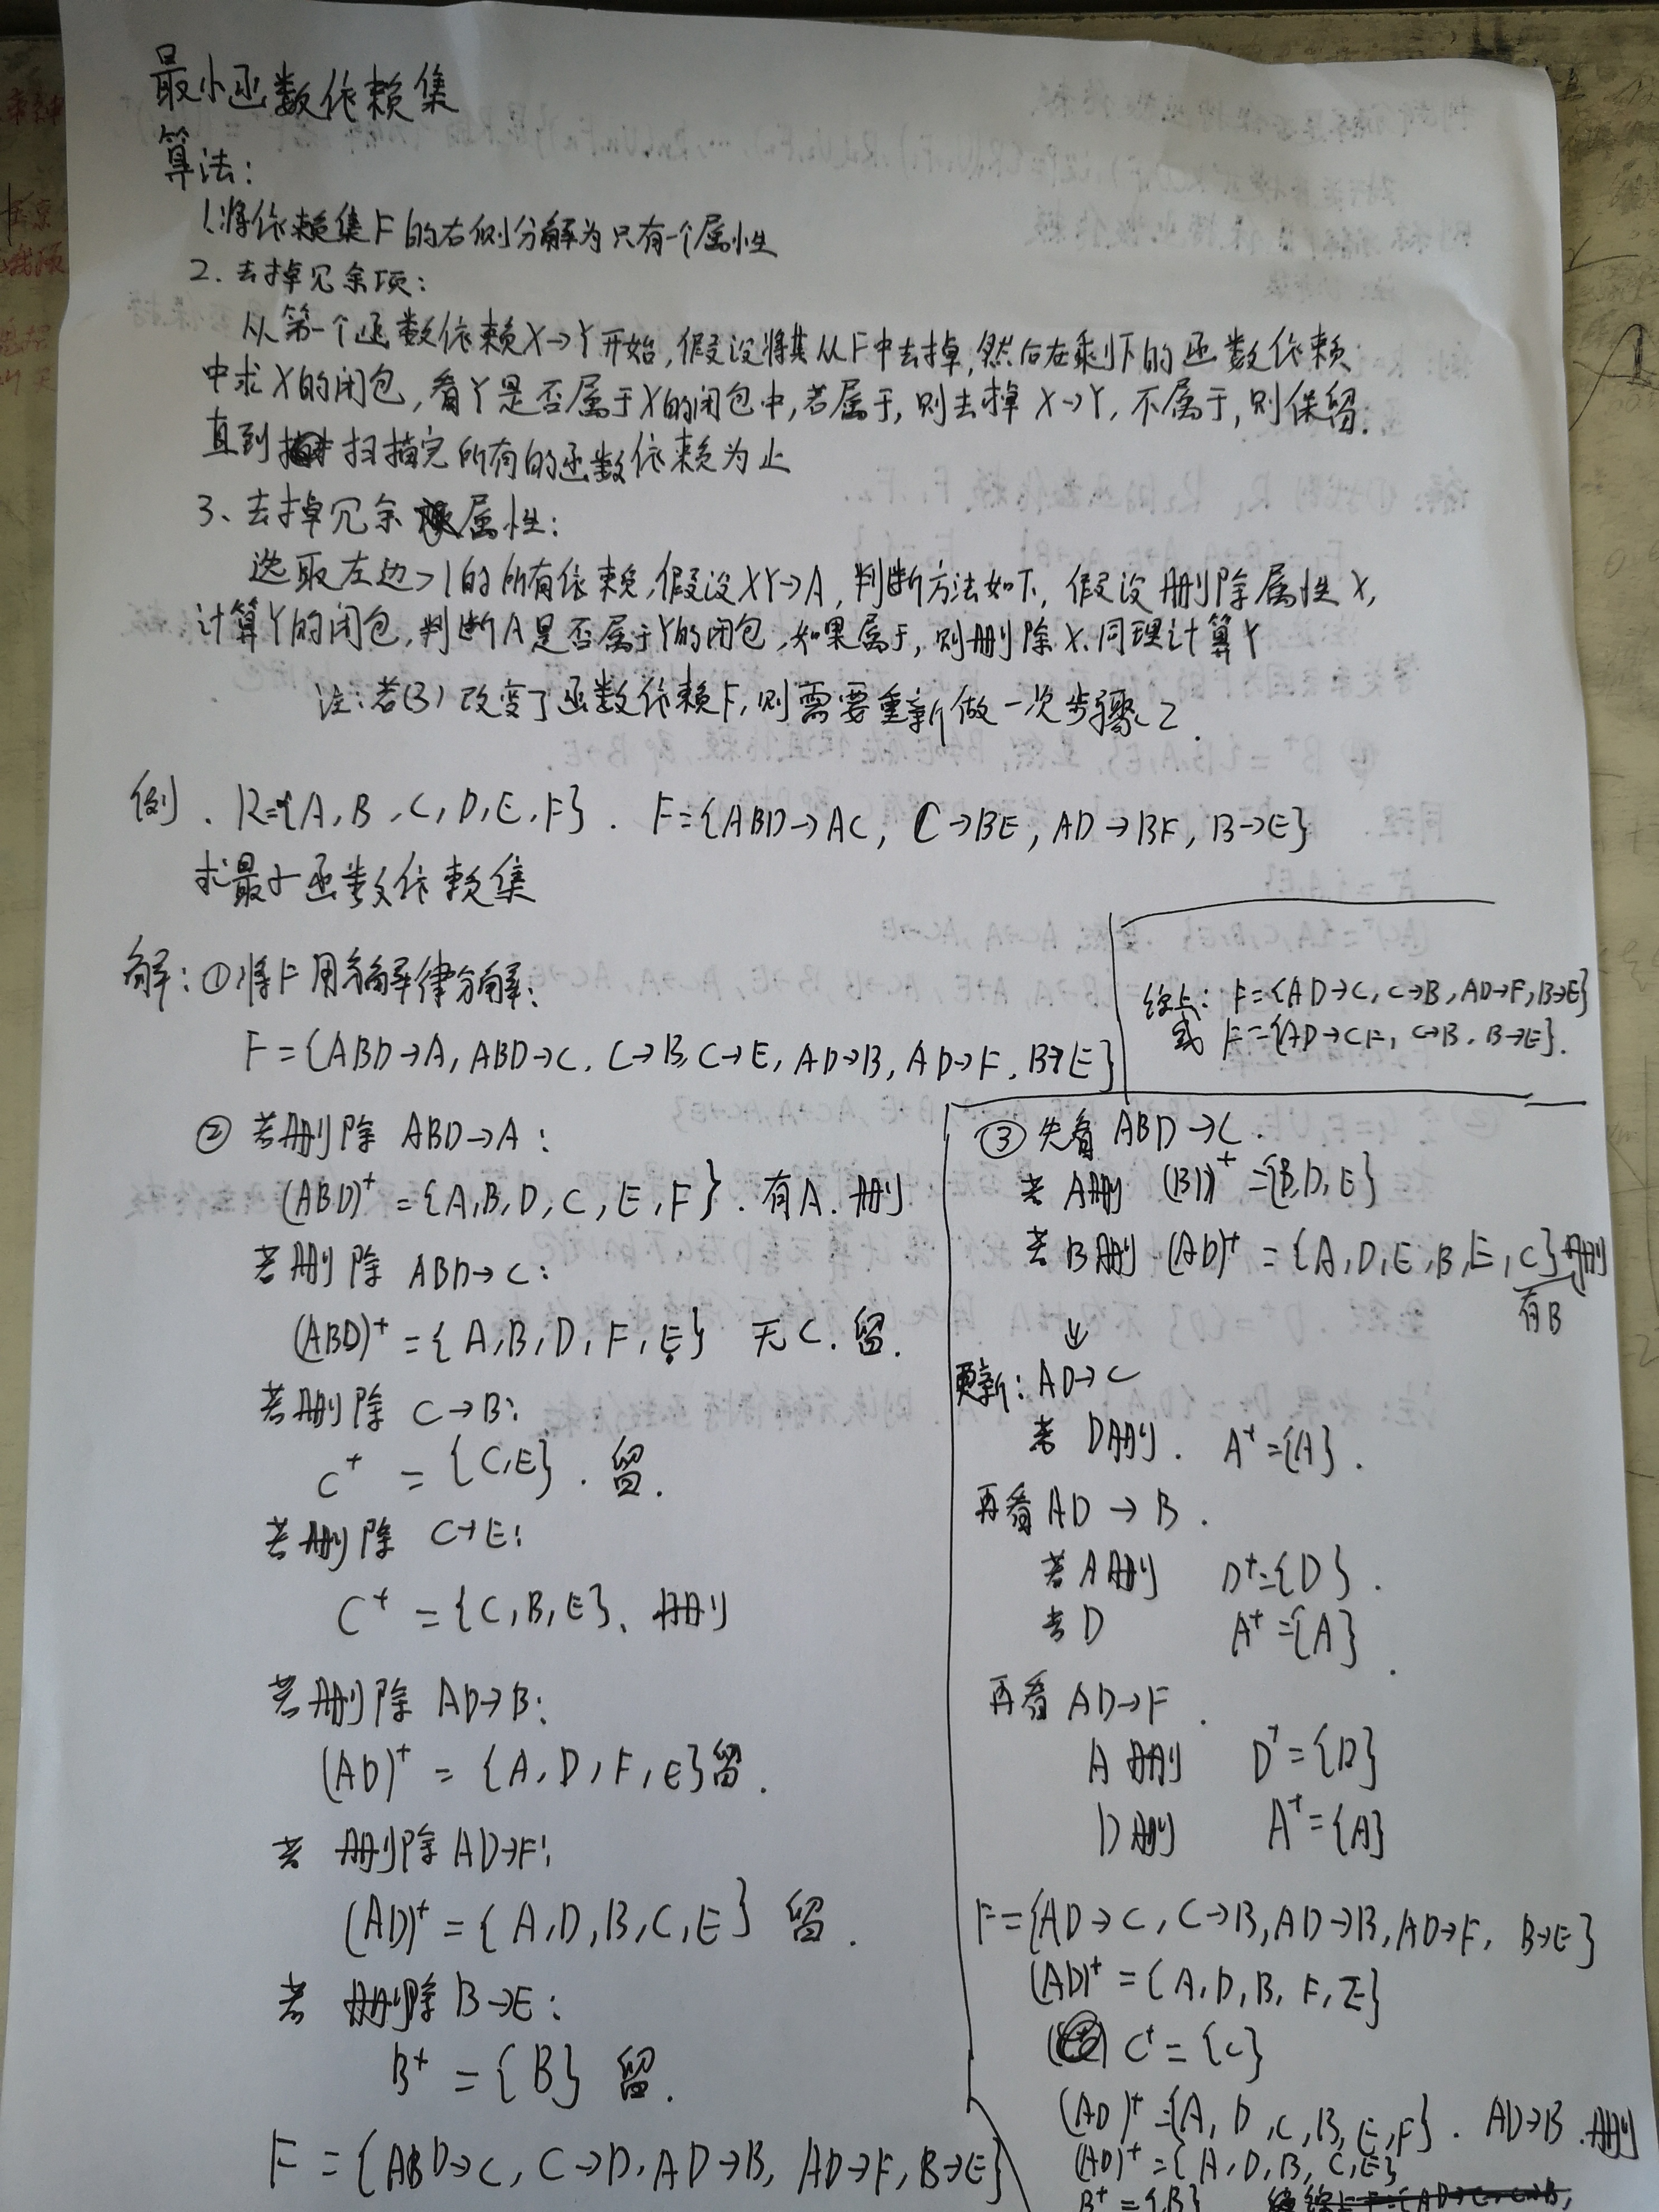 最小函数依赖集
算法:
1.将依赖集F的右侧分解为只有一个属性
2.去掉冗余项:
从第一个函数依赖X→Y开始,假设将其从F中去掉,然后在剩下的函数依赖
中求X的闭包,看Y是否属于X的闭包中,若属于,则去掉X→Y,不属于,则保留.
直到扫描完所有的函数依赖为止
3、去掉冗余属性:
选取左边>1的所有依赖,假设XY→A,判断方法如下,假设删除属性X,
计算Y的闭包,判断A是否属于Y的闭包,如果属于,则删除X.同理计算Y
注:若(3)改变了函数依赖F,则需要重新做一次步骤2.
例.R={A,B,C,D,E,F}. F={ABD→AC, C→BE, AD→BF, B→E}
求最小函数依赖集
解:①将F用分解律分解:
F={ABD→A, ABD→C, C→B, C→E, AD→B, AD→F, B→E}
综上: F={AD→C, C→B, AD→F, B→E}
或 F={AD→CF, C→B, B→E}.
②若删除 ABD→A:
(ABD)⁺={A,B,D,C,E,F}.有A.删
若删除 ABD→C:
(ABD)⁺={A,B,D,F,E} 无C.留.
若删除 C→B:
C⁺={C,E}.留.
若删除 C→E:
C⁺={C,B,E}、删
若删除 AD→B:
(AD)⁺={A,D,F,E}留.
若删除AD→F:
(AD)⁺={A,D,B,C,E} 留.
若删除B→E:
B⁺={B} 留.
F={ABD→C, C→D, AD→B, AD→F, B→E}
③先看 ABD→C.
若A删 (BD)⁺={B,D,E}
若B删 (AD)⁺={A,D,E,B,E,C}删
有B
↓
更新: AD→C
若D删. A⁺={A}.
再看AD→B.
若A删 D⁺={D}.
若D A⁺={A}.
再看AD→F.
A删 D⁺={D}
D删 A⁺={A}
F={AD→C, C→B, AD→B, AD→F, B→E}
(AD)⁺={A,D,B,F,E}
C⁺={C}
(AD)⁺={A,D,C,B,E,F}. AD→B.删
(AD)⁺={A,D,B,C,E}
B⁺={B}